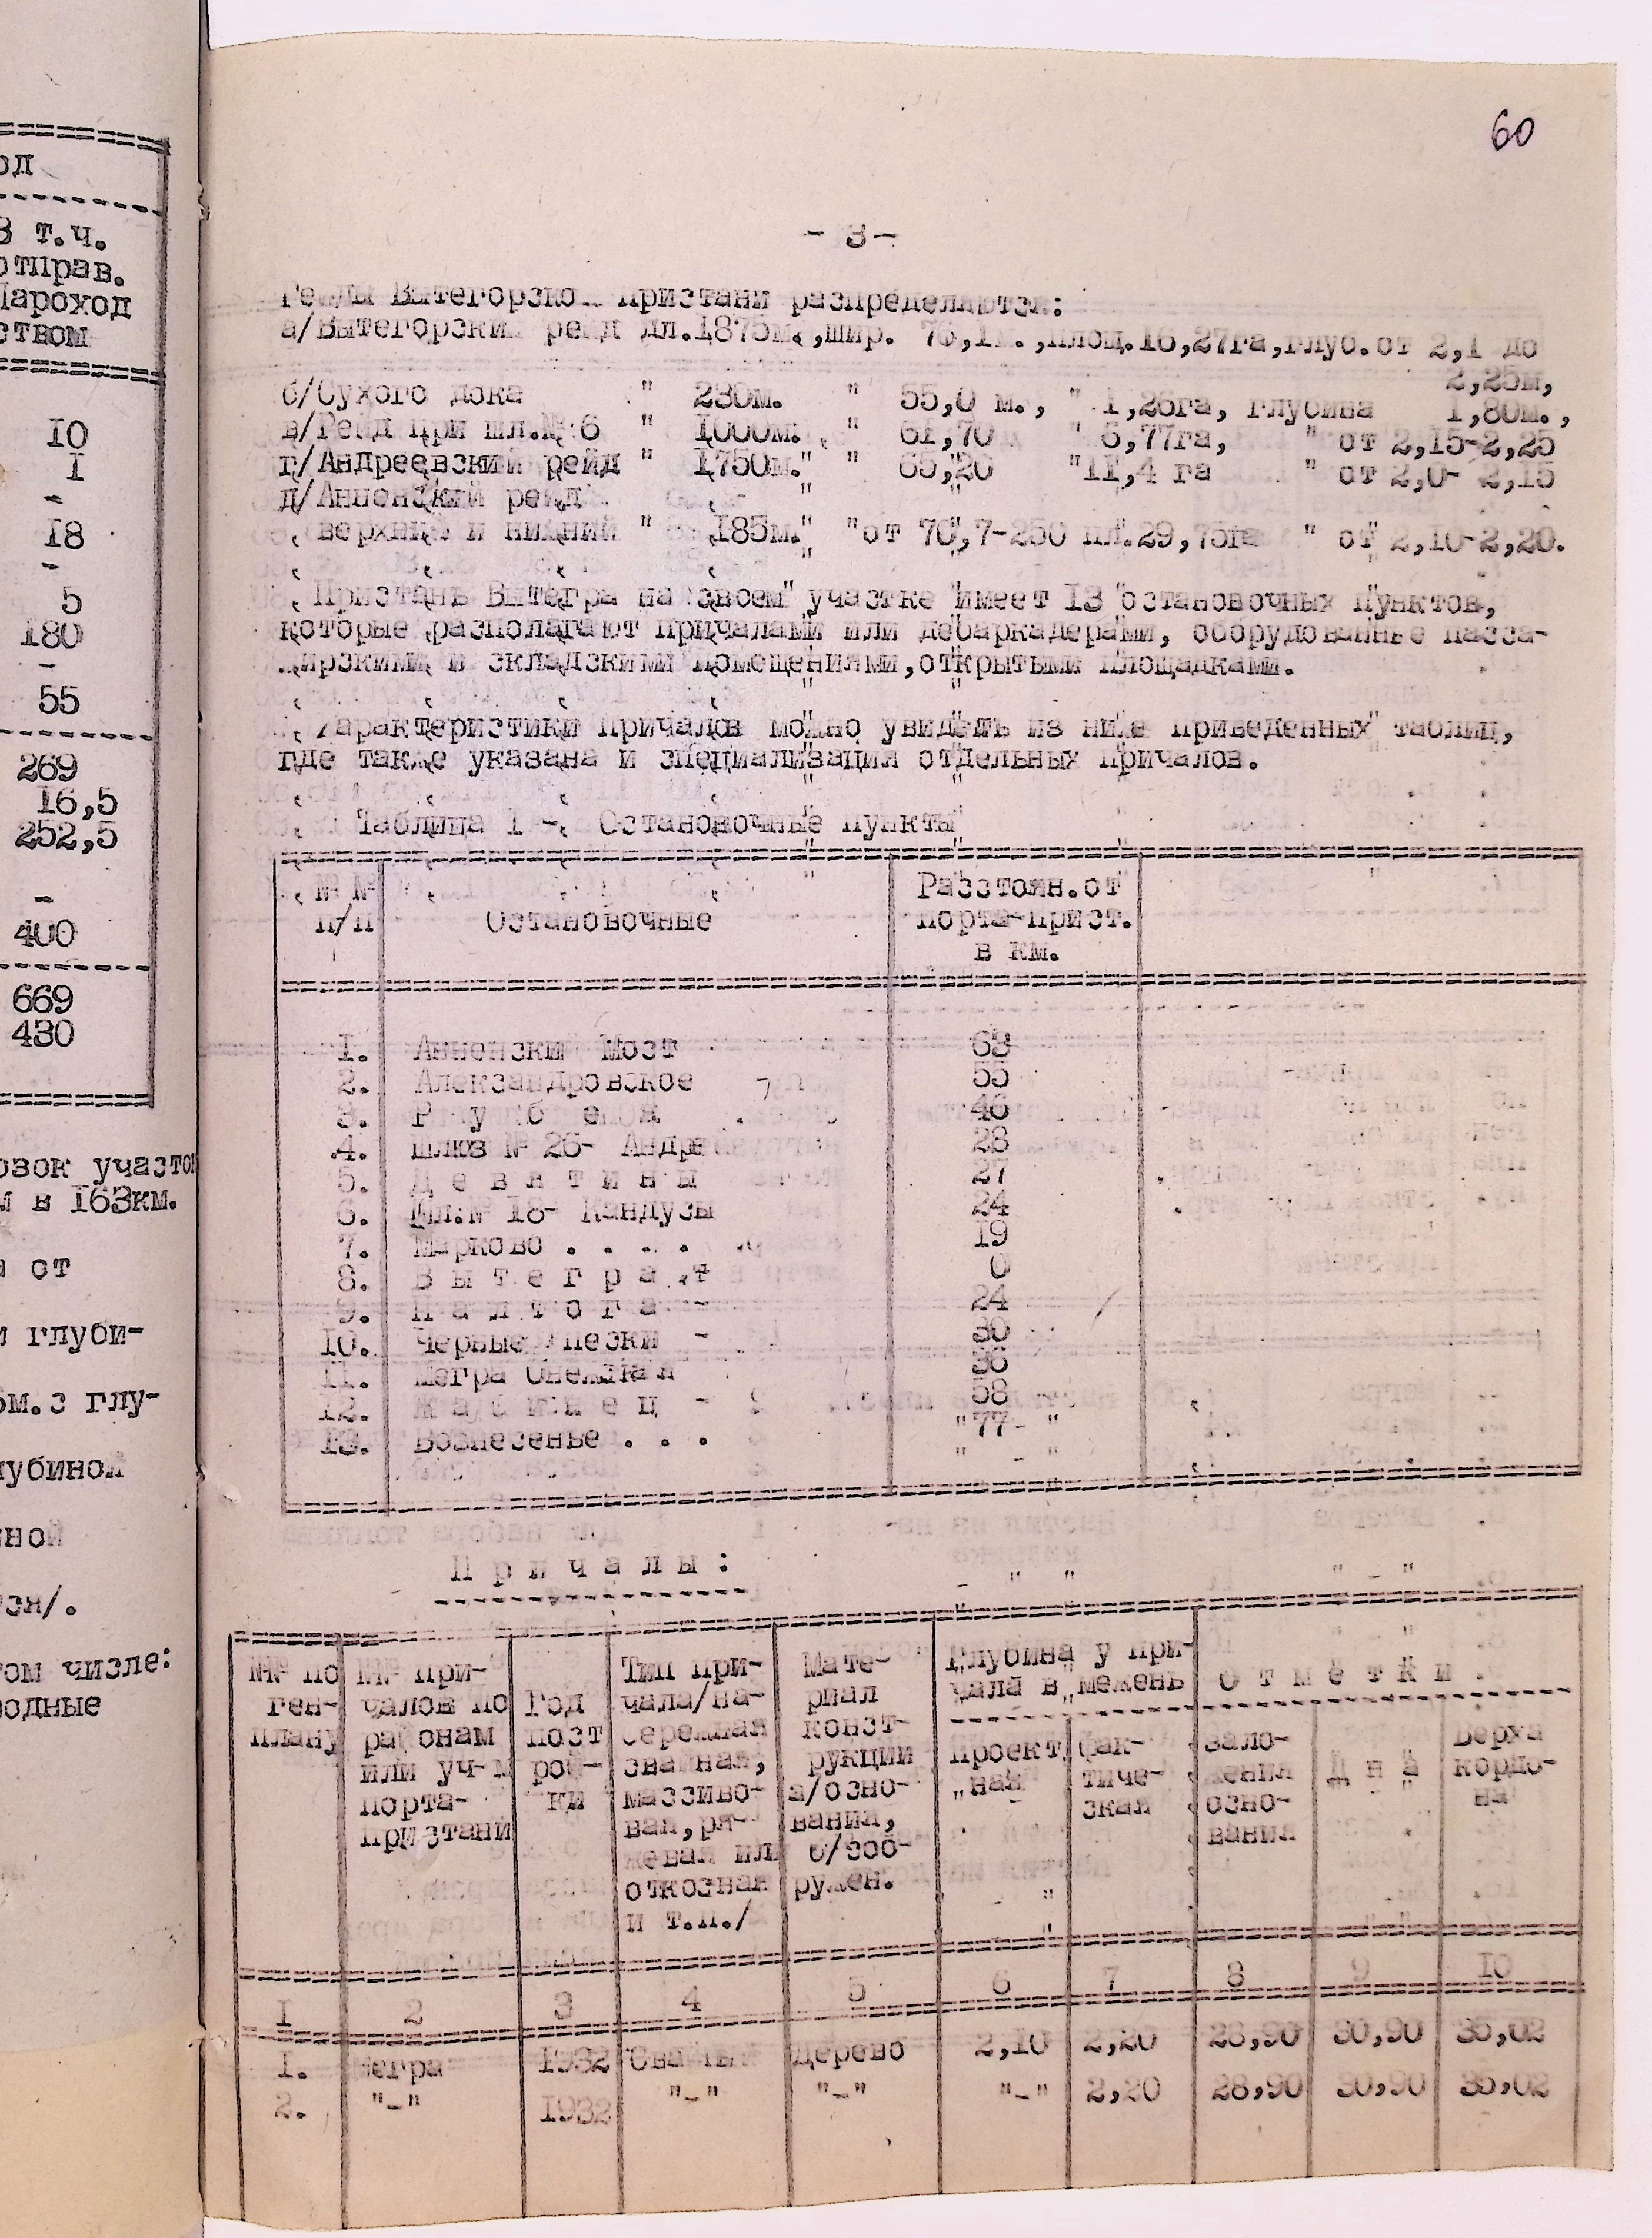 60
- 3 -
Рейды Вытегорской пристани распределяются:
а/Вытегорский рейд дл.1875м.,шир. 76,1м.,площ.16,27га,глуб.от 2,1 до
2,25м,
б/Сухого дока " 230м. " 55,0 м., " 1,26га, глубина 1,80м.,
в/Рейд при шл.№ 6 " 1000м. " 61,70 " 6,77га, " от 2,15-2,25
г/Андреевский рейд " 1750м. " 65,26 " 11,4 га " от 2,0- 2,15
д/Анненский рейд
верхний и нижний " 185м. " от 70,7-250 пл.29,75га " от 2,10-2,20.
Пристань Вытегра на своем участке имеет 13 остановочных пунктов,
которые располагают причалами или дебаркадерами, оборудованные пасса-
жирскими и складскими помещениями,открытыми площадками.
Характеристики причалов можно увидеть из ниже приведенных таблиц,
где также указана и специализация отдельных причалов.
Таблица 1 - Остановочные пункты
№ №
п/п
Остановочные
Расстоян.от
порта-прист.
в км.
1. Анненский Мост 63
2. Александровское 55
3. 46
4. Шлюз № 26- Андре 28
5. Д е в я т и н ы 27
6. Шл.№ 18- Кандузы 24
7. Марково . . . . 19
8. В ы т е г р а 0
9. П а л т о г а - 24
10. Черные пески - 30
11. Мегра Онежская 36
12. 58
13. Вознесенье . . . "77- "
П р и ч а л ы :
№№ по
ген-
плану
№№ при-
чалов по
районам
или уч-м
порта-
пристани
Год
пост
рой-
ки
Тип при-
чала/на-
бережная
свайная,
массиво-
вая,ря-
жевая или
откосная
и т.п./
Мате-
риал
конст-
рукции
а/осно-
вания,
б/соо-
ружен.
Глубина у при-
чала в межень
проект
ная
фак-
тиче-
ская
О т м е т к и
зало-
жения
осно-
вания
Д н а
Верха
кордо-
на
1 2 3 4 5 6 7 8 9 10
1. Мегра 1932 Свайный дерево 2,10 2,20 28,90 30,90 35,02
2. "-" 1932 "-" "-" "-" 2,20 28,90 30,90 35,02
од
В т.ч.
отправ.
Пароход
ством
10
1
-
18
-
5
180
-
55
269
16,5
252,5
-
400
669
430
озок участо
м в 163км.
от
глуби-
ом.с глу-
убиной
ной
зн/.
ом числе:
одные